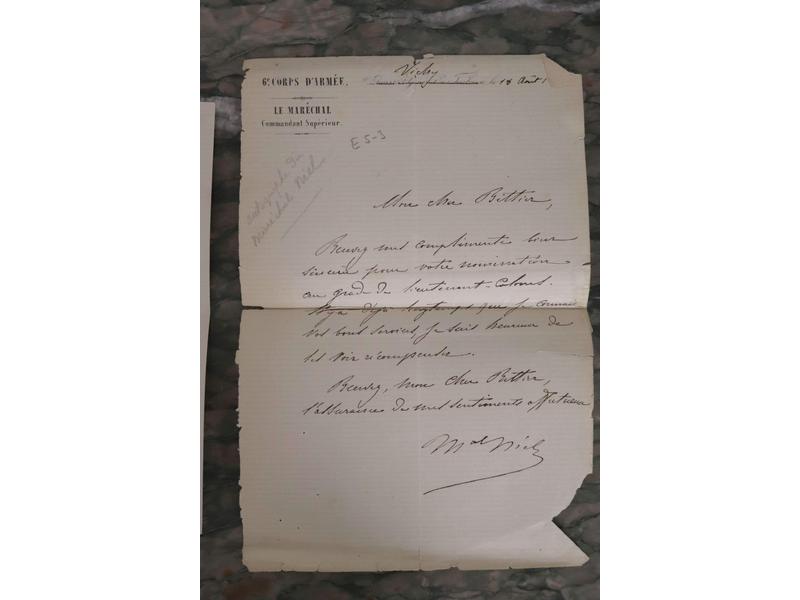 Vichy
6e CORPS D'ARMÉE,
le 18 Août 1
LE MARÉCHAL
Commandant Supérieur.
E 5-3
autographe du
Maréchal Niel
Mon cher Bittier,
Recevez mes compliments bien
sincères pour votre nomination
au grade de lieutenant Colonel.
Il y a déja longtemps que je connais
vos bons services, je suis heureux de
les voir récompensés.
Recevez, mon cher Bittier,
l'assurance de mes sentiments affectueux
Mal Niel